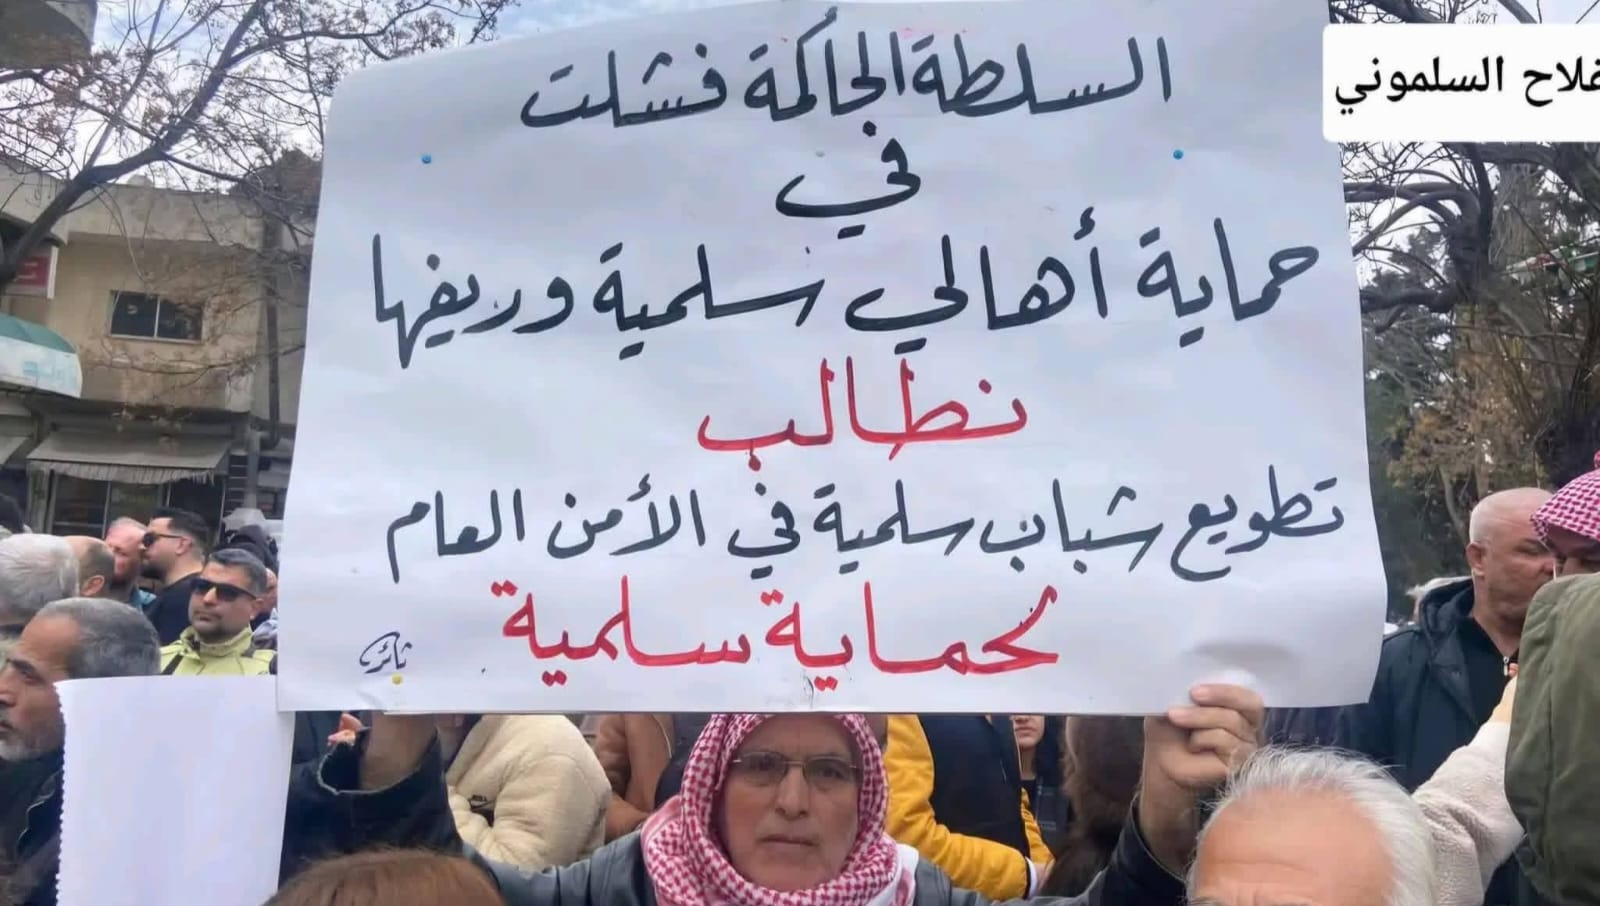 السلطة الحاكمة فشلت
في
حماية أهالي سلمية وريفها
نطالب
تطويع شباب سلمية في الأمن العام
لحماية سلمية
ثائر
فلاح السلموني